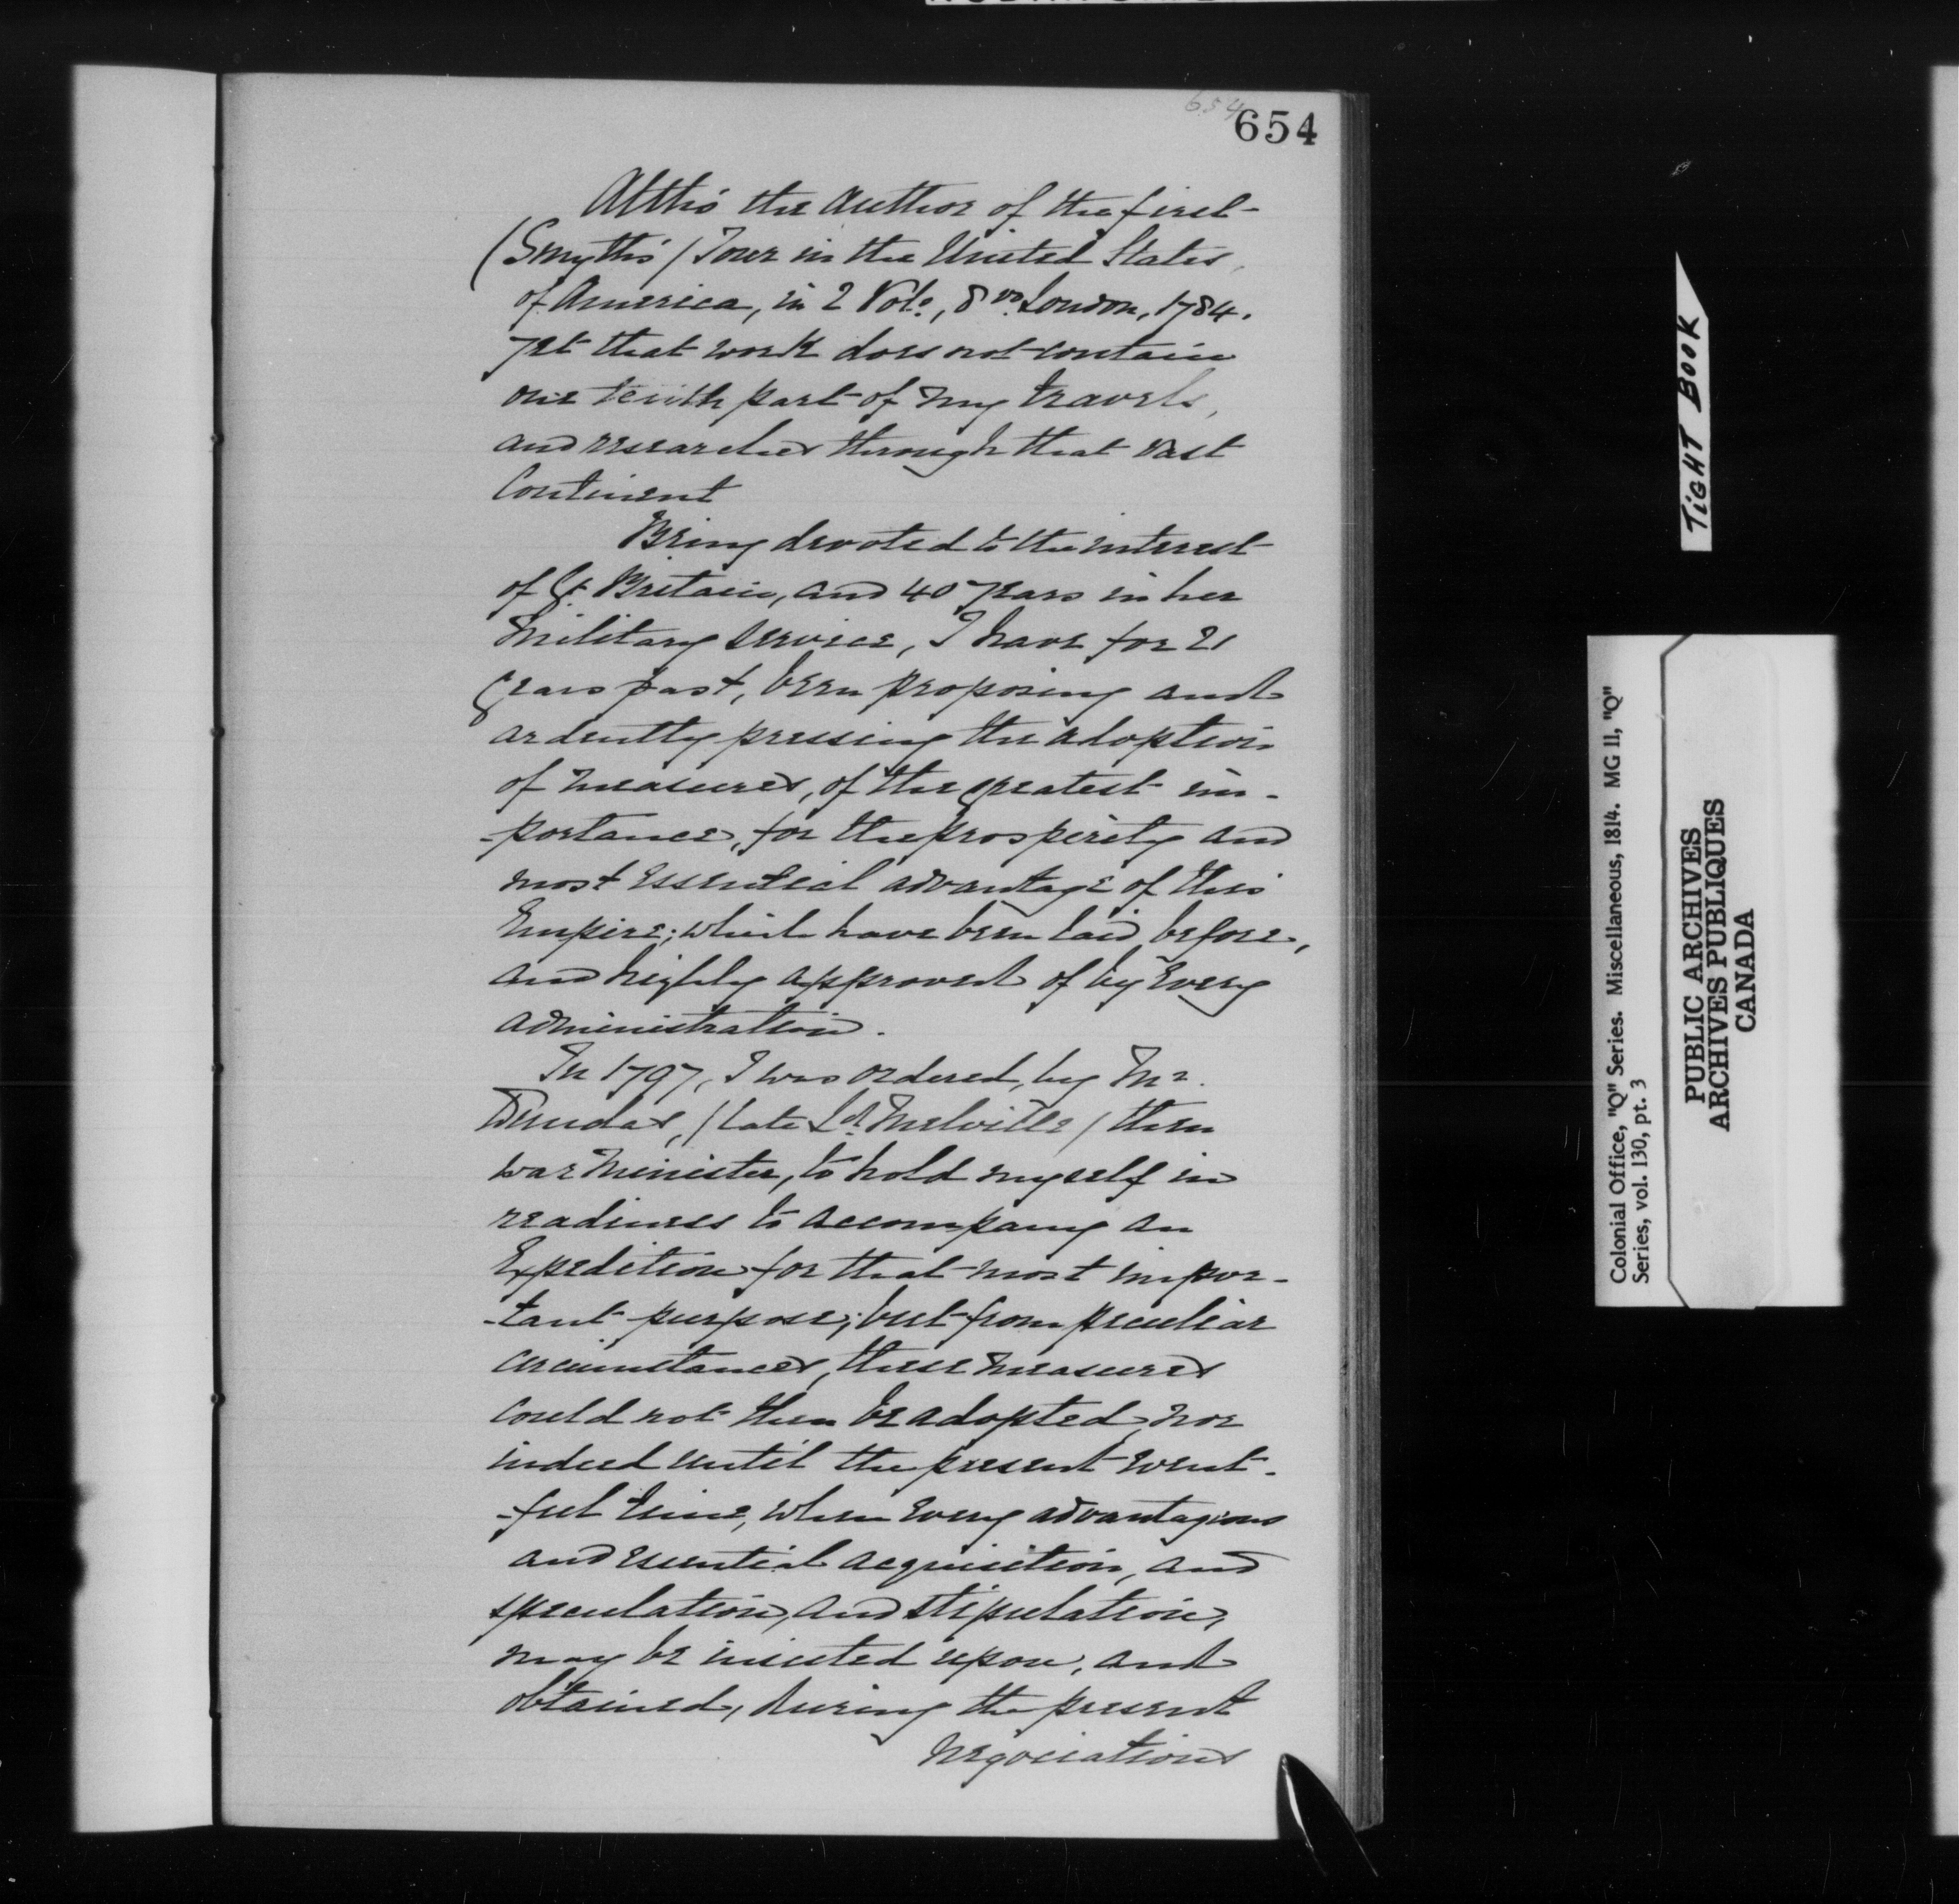 654
654
Altho' the Author of the first
(Smyth's) Tour in the United States,
of America, in 2 Vols, 8vo. London, 1784.
yet that work does not contain
one tenth part of my travels,
and researches through that vast
Continent
Being devoted to the interest
of Gt. Britain, and 40 years in her
Military service, I have for 21
years past, been proposing and
ardently pressing the adoption
of measures, of the greatest im-
-portance, for the prosperity and
most essential advantage of this
Empire; which have been laid before,
and highly approved of by every
administration.
In 1797, I was ordered, by Mr.
Dundas, (late Ld. Melville) then
war Minister, to hold myself in
readiness to accompany an
Expedition for that most impor-
-tant purpose; but from peculiar
circumstances, these measures
could not then be adopted, nor
indeed until the present event-
-ful time, when every advantagious
and essential acquisition, and
speculation, and stipulation,
may be insisted upon, and
obtained, during the present
Negociations
TiGHT BOOK
Colonial Office, "Q" Series. Miscellaneous, 1814. MG 11, "Q"
Series, vol. 130, pt. 3
PUBLIC ARCHIVES
ARCHIVES PUBLIQUES
CANADA